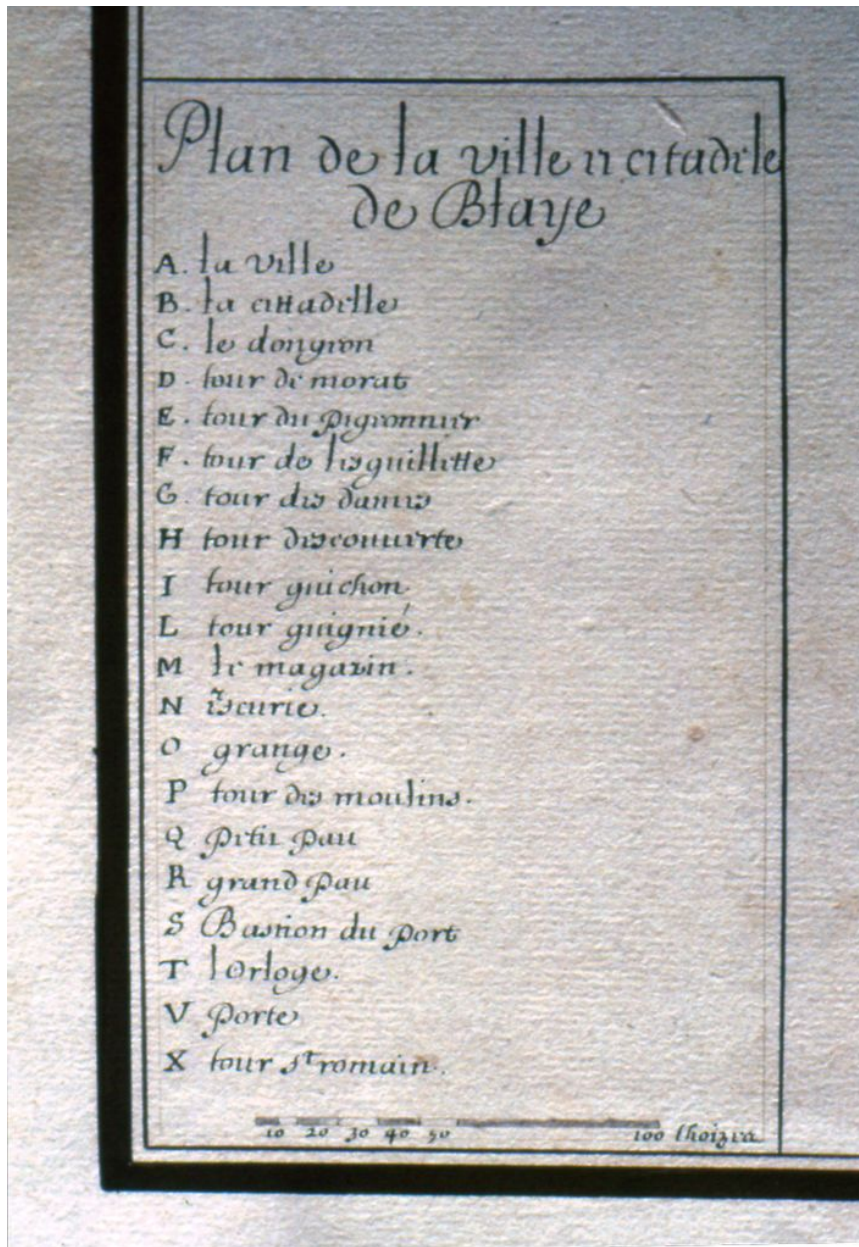 Plan de la ville et citadele
de Blaye
A. la ville
B. la cittadelle
C. le dongron
D. tour de morat
E. tour du pigronnier
F. tour de lesguillette
G. tour des dames
H tour descouuerte
I tour guichon.
L tour guignié.
M le magazin.
N escurie.
O grange.
P tour des moulins.
Q petit pau
R grand pau
S Bastion du port
T lOrloge.
V Porte
X tour st romain.
10 20 30 40 50 100